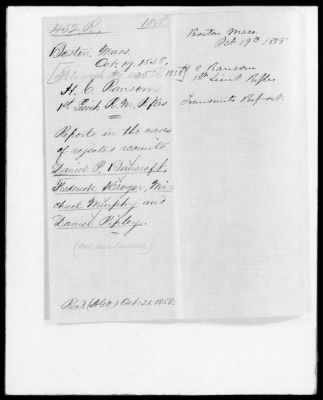 452 R. 1858.
Boston, Mass.
Oct. 19, 1858.
H. C. Ransom
1st Lieut. R. M. Rifles
Reports in the cases
of rejected recruits
Daniel P. Bancroft,
Frederick Kroger, Mi-
chael Murphy and
Daniel Ripley.
(one enclosure)
Rec'd (AGO) Oct. 22 1858.
Boston Mass.
Oct 19th 1858
H C Ransom
1st Lieut Rifles
Transmits Report.